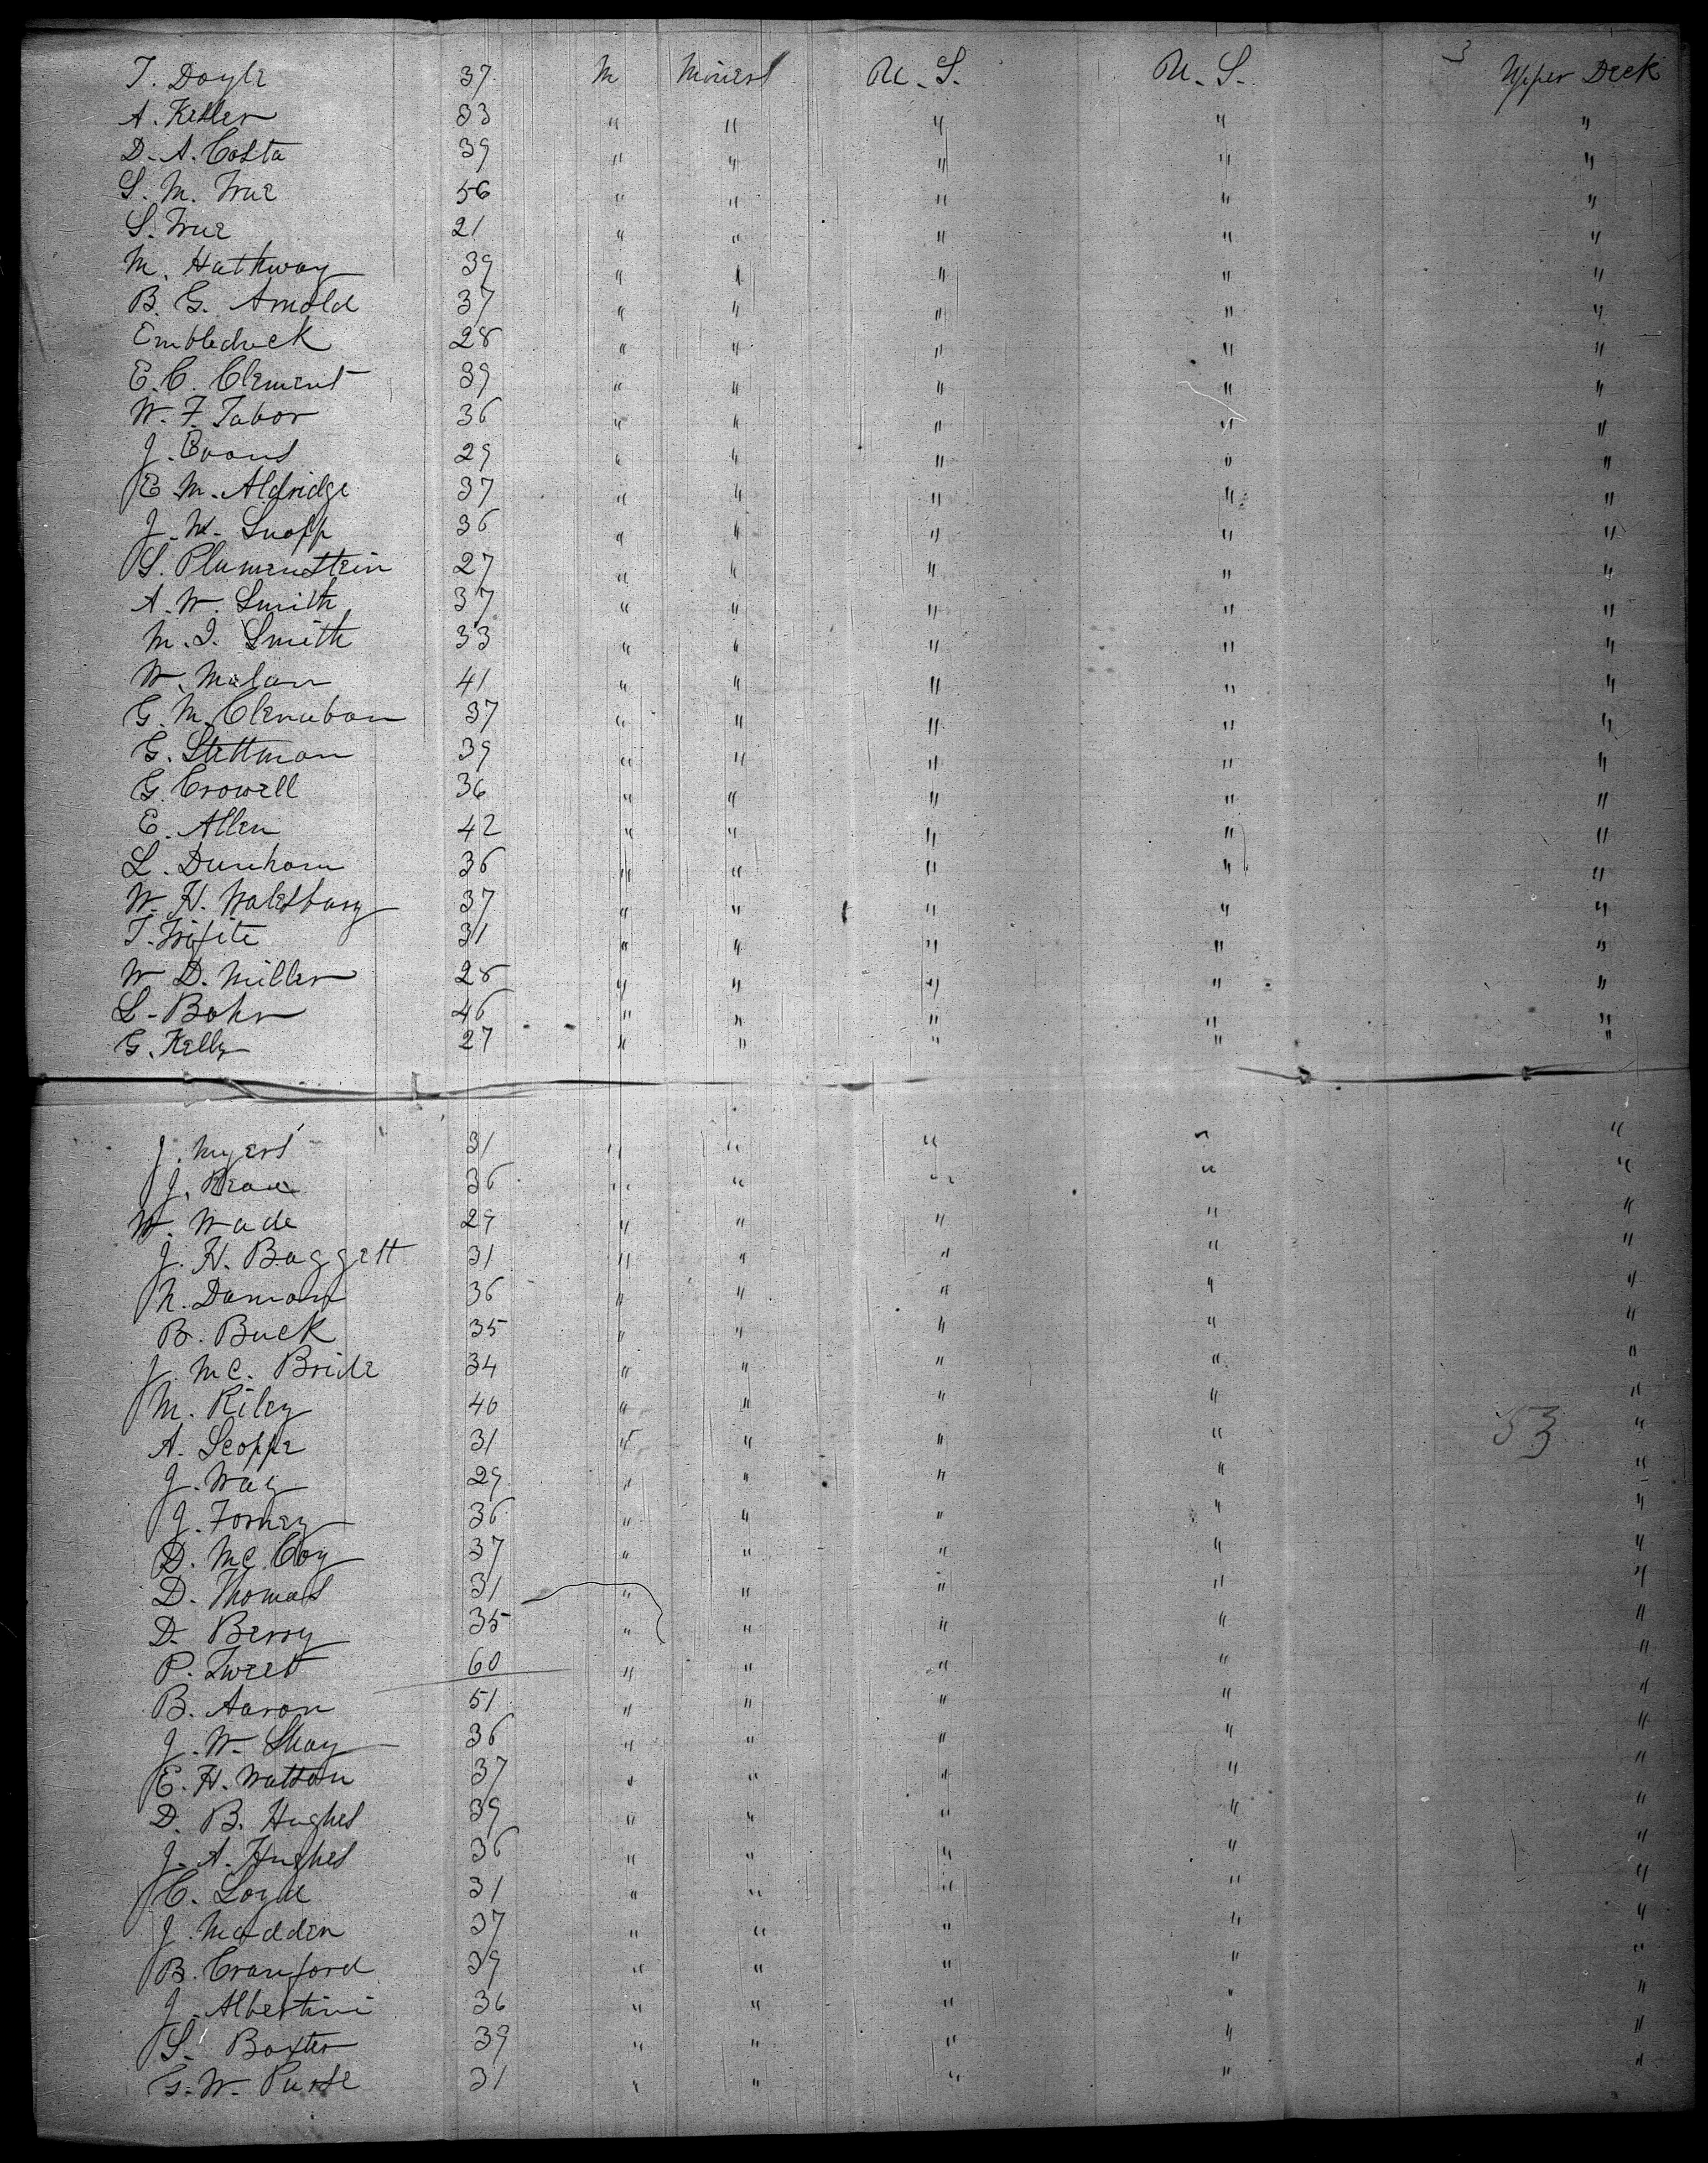 3
T. Doyle 37 M Miners U. S. U. S. Upper Deck
A. Keller 33 " " " " "
D. A. Costa 39 " " " " "
S. M. True 56 " " " " "
S. True 21 " " " " "
M. Hathway 39 " " " " "
B. G. Arnold 37 " " " " "
28 " " " " "
E. C. Clement 39 " " " " "
W. F. Tabor 36 " " " " "
J. Evans 29 " " " " "
E M. Aldridge 37 " " " " "
J. W. 36 " " " " "
S. Plumenstein 27 " " " " "
A. W. Smith 37 " " " " "
M. I. Smith 33 " " " " "
W. 41 " " " " "
G. M. 37 " " " " "
G. Stettman 39 " " " " "
G. Crowell 36 " " " " "
E. Allen 42 " " " " "
L. Dunham 36 " " " " "
W. H. 37 " " " " "
T. 31 " " " " "
W D. Miller 28 " " " " "
L. Bohr 46 " " " " "
G. Kelly 27 " " " " "
J. Myers 31 " " " " "
J. 36 " " " " "
W. Wade 29 " " " " "
J. H. Baggett 31 " " " " "
N. Damon 36 " " " " "
B. Buck 35 " " " " "
J. Mc. Bride 34 " " " " "
M. Riley 40 " " " " "
A. Scoppe 31 " " " " 53 "
J. Way 29 " " " " "
J. Forney 36 " " " " "
D. Mc. Coy 37 " " " " "
D. Thomas 31 " " " " "
D. Berry 35 " " " " "
P. 60 " " " " "
B. Aaron 51 " " " " "
J. W. Shay 36 " " " " "
E. H. Watson 37 " " " " "
D. B. Hughes 39 " " " " "
J. A. Hughes 36 " " " " "
C. 31 " " " " "
J. Madden 37 " " " " "
B. Cranford 39 " " " " "
J. Albertini 36 " " " " "
S. Baxter 39 " " " " "
G. W. 31 " " " "